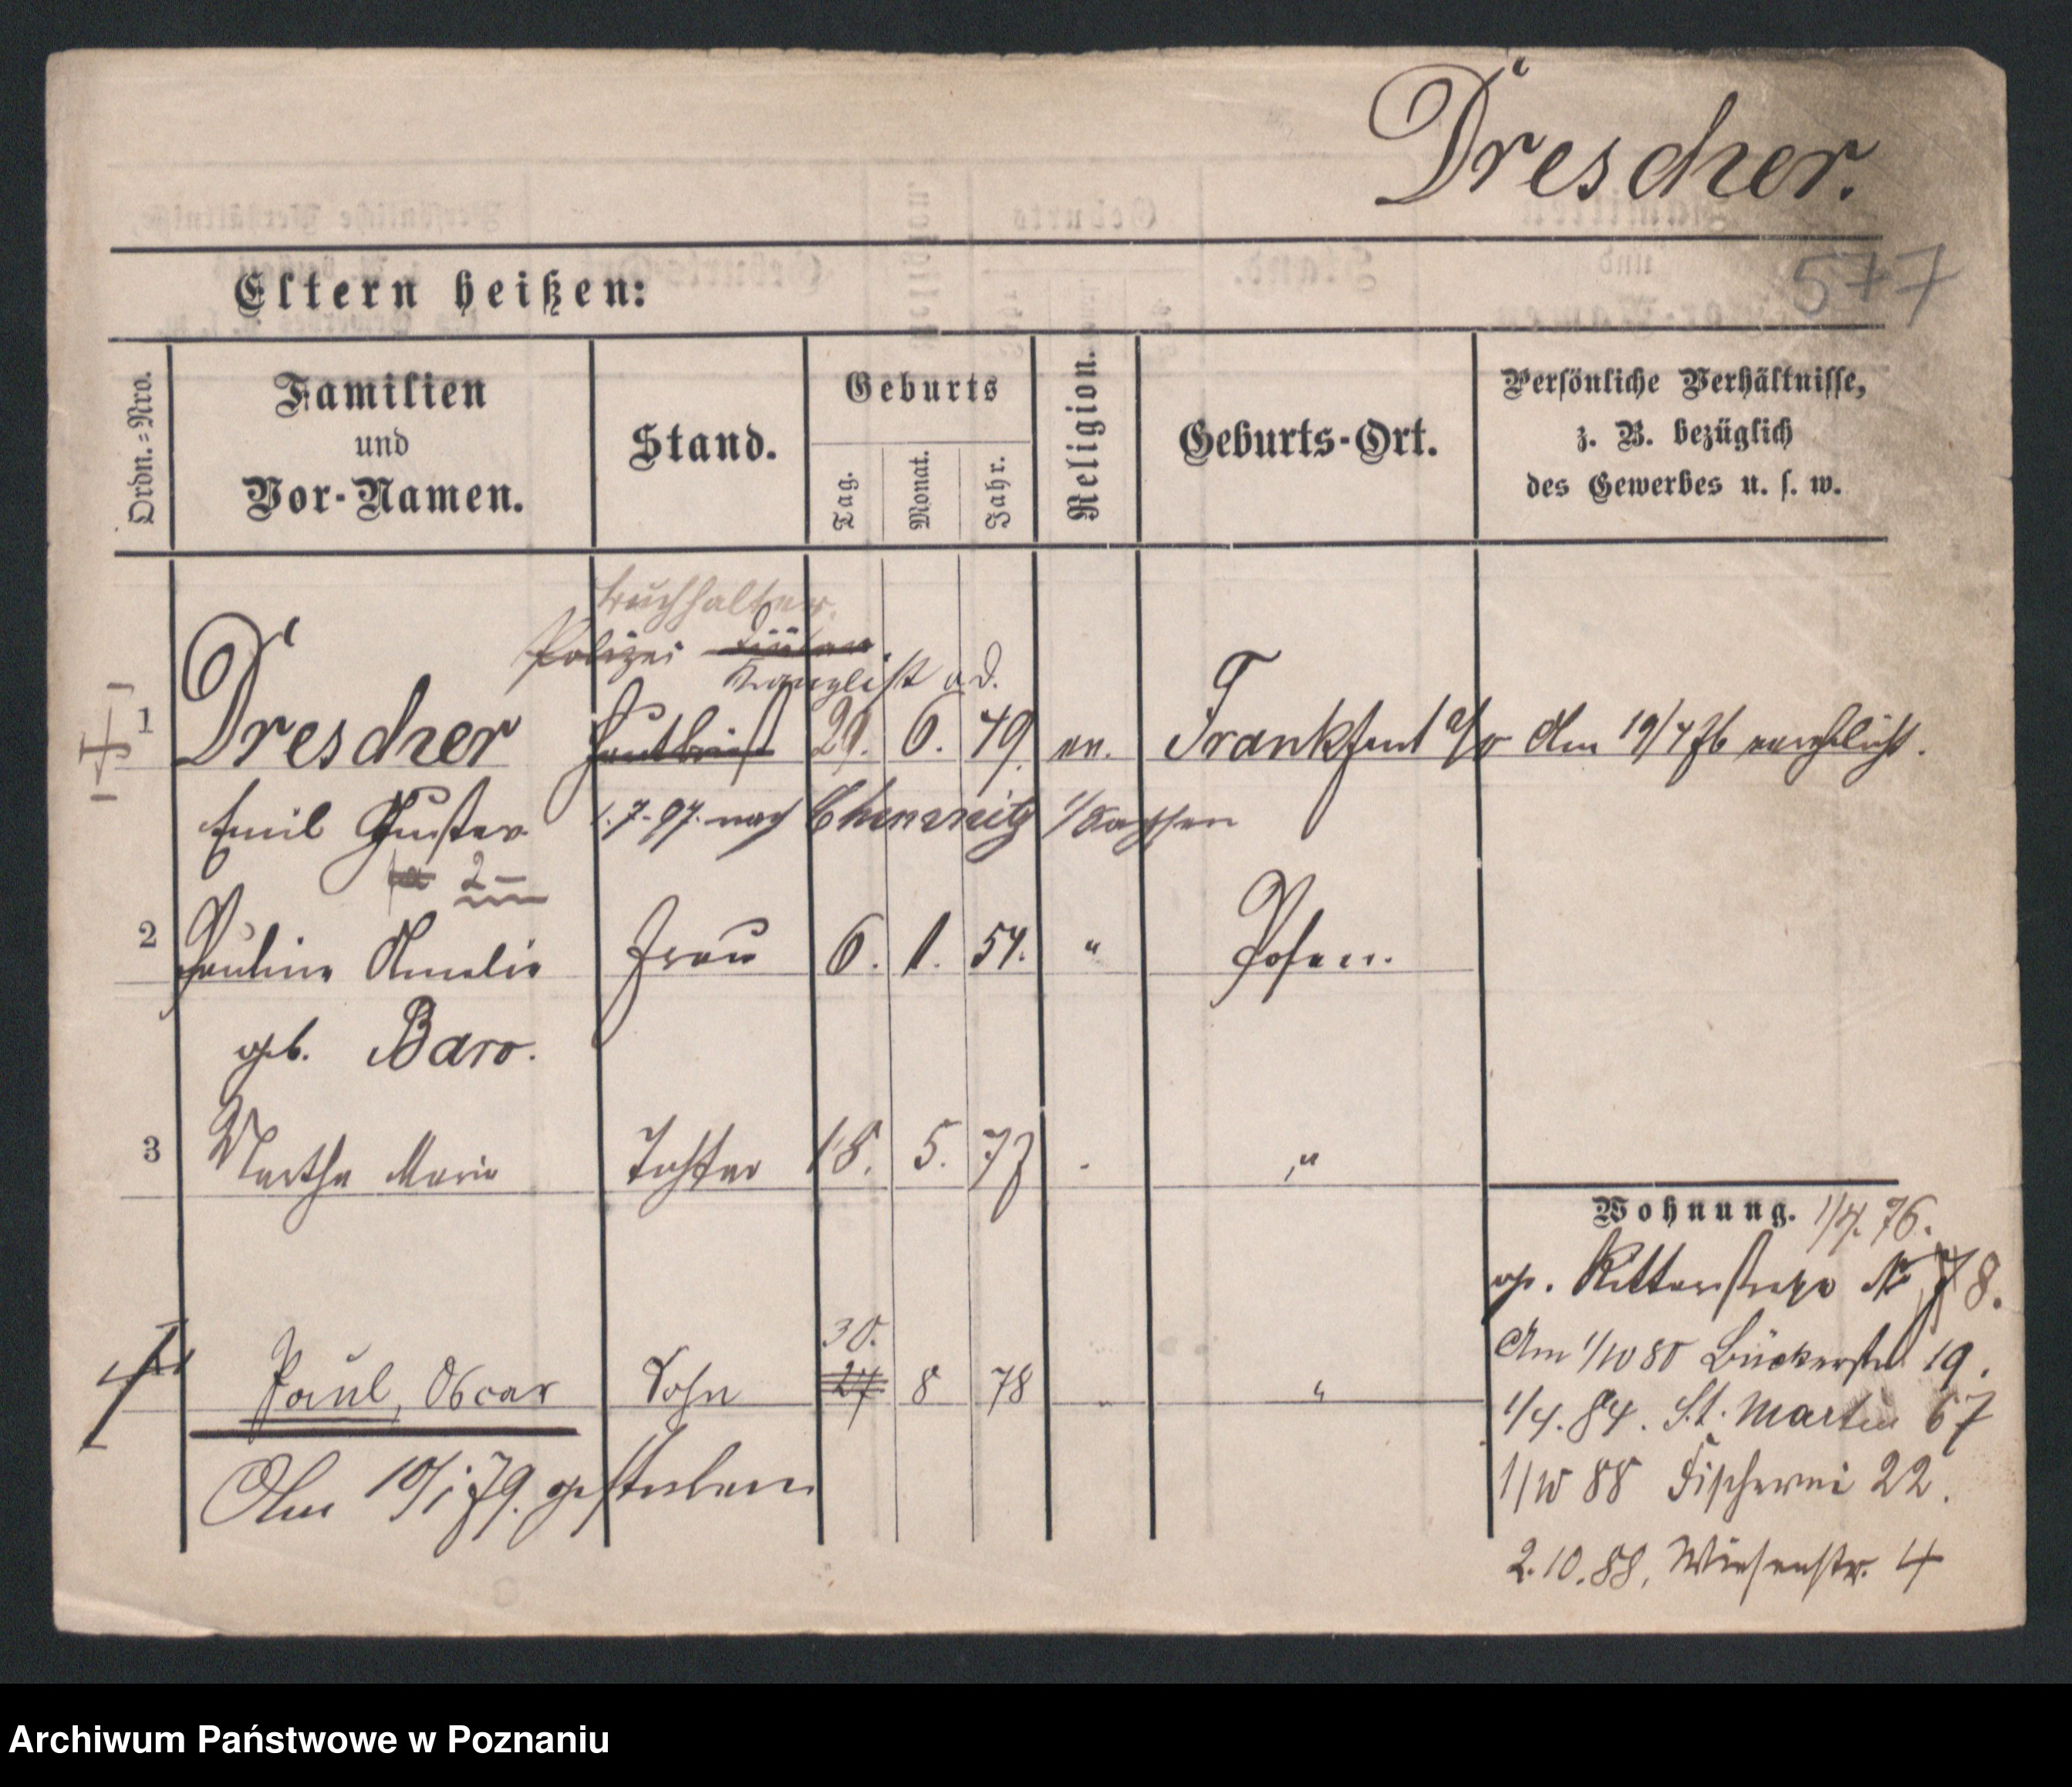 Drescher.
577
Eltern heißen:
Ordn.=Nro.
Familien
und
Vor-Namen.
Stand.
Geburts
Tag.
Monat.
Jahr.
Religion.
Geburts-Ort.
Persönliche Verhältnisse,
z. B. bezüglich
des Gewerbes u. s. w.
Buchhalter
Polizei Diätar
Kanzlist a.D.
1 Drescher 29. 6. 49. ev. Frankfurt a/O Am 19/4 76 verehelicht.
Emil Gustav 1.7.97. nach Chemnitz i/Sachsen
2 Pauline Amalie Frau 6. 1. 54. " Posen.
geb. Baro.
3 Martha Marie Tochter 18. 5. 77 "
Wohnung. 1/4. 76.
gr. Ritterstraße No 7 8.
30.
Am 1/10 80 Bückerstr 19.
4 Paul, Oscar Sohn 27 8 78 " "
1/4. 84. St. Martin 67
Am 10/1 79. gestorben
1/10 88 Fischerei 22.
2.10.88. Wiesenstr. 4
Archiwum Państwowe w Poznaniu